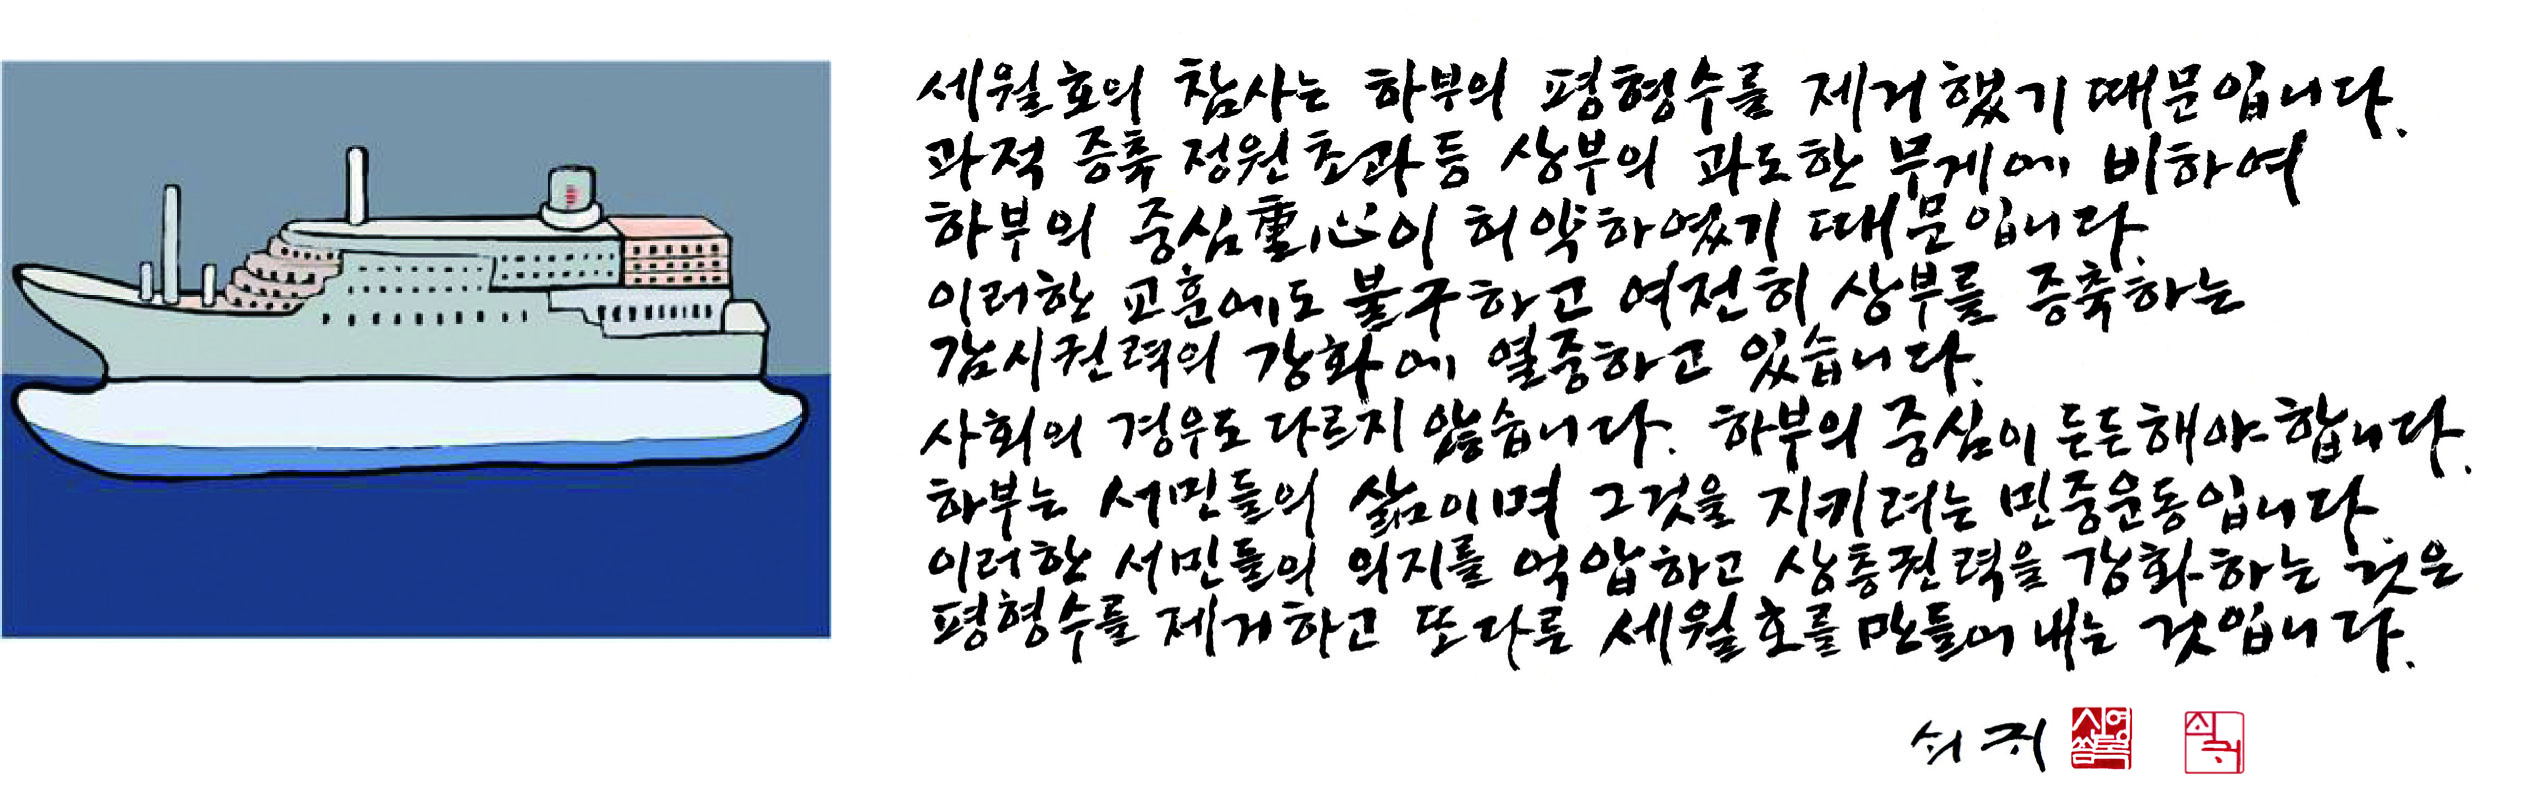 세월호의 참사는 하부의 평형수를 제거했기 때문입니다.
과적 증축 정원초과등 상부의 과도한 무게에 비하여
하부의 중심重心이 허약하였기 때문입니다.
이러한 교훈에도 불구하고 여전히 상부를 증축하는
감시권력의 강화에 열중하고 있습니다.
사회의 경우도 다르지 않습니다. 하부의 중심이 든든해야 합니다.
하부는 서민들의 삶이며 그것을 지키려는 민중운동입니다.
이러한 서민들의 의지를 억압하고 상층권력을 강화하는 것은
평형수를 제거하고 또다른 세월호를 만들어 내는 것입니다.
쇠귀